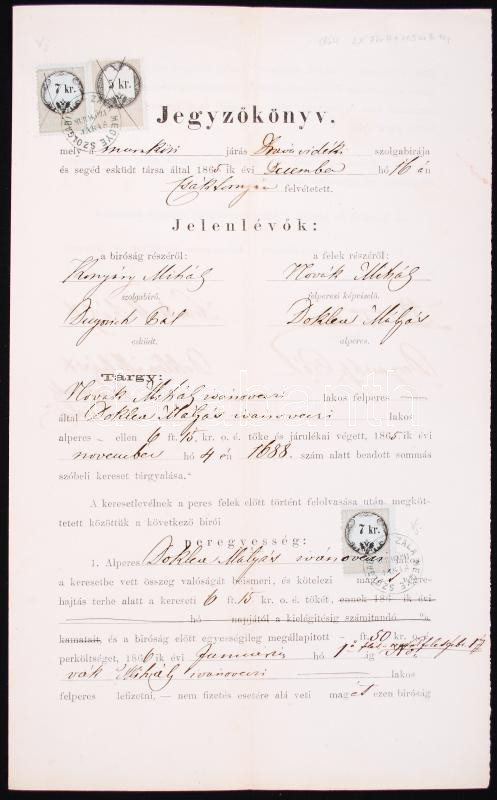 7 kr.
5 kr.
Jegyzőkönyv.
mely a muraközi járás Dráva vidéki szolgabirája
és segéd esküdt társa által 1865 ik évi December hó 16 án
Csáktornyán felvétetett.
Jelenlévők:
a biróság részéről: a felek részéről:
Mihály Novák Mihály
szolgabiró. felperesi képviselő.
Pál Doklea Mátyás
esküdt. alperes.
Tárgy:
Novák Mihály ivánoveczi lakos felperes
által Doklea Mátyás ivanoveczi lakos
alperes ellen 6 ft. 15 kr. o. é. tőke és járulékai végett, 1865 ik évi
november hó 4 én 1688. szám alatt beadott sommás
szóbeli kereset tárgyalása.
A keresetlevélnek a peres felek előtt történt felolvasása után, megköt-
tetett közöttük a következő birói
peregyesség:
7 kr.
1. Alperes Doklea Mátyás ivánoveczi
a keresetbe vett összeg valóságát beismeri, és kötelezi
hajtás terhe alatt a kereseti 6 ft. 15 kr. o. é. tőkét, ennek 186 ik évi
hó napjától a kielégitésig számitandó %
kamatait, és a biróság előtt egyességileg megállapitott ft. 50 kr.
perköltséget, 1866 ik évi Januarius hó 1
vák Mihály ivánoveczi lakos
felperes lefizetni, — nem fizetés esetére alá veti magát ezen biróság